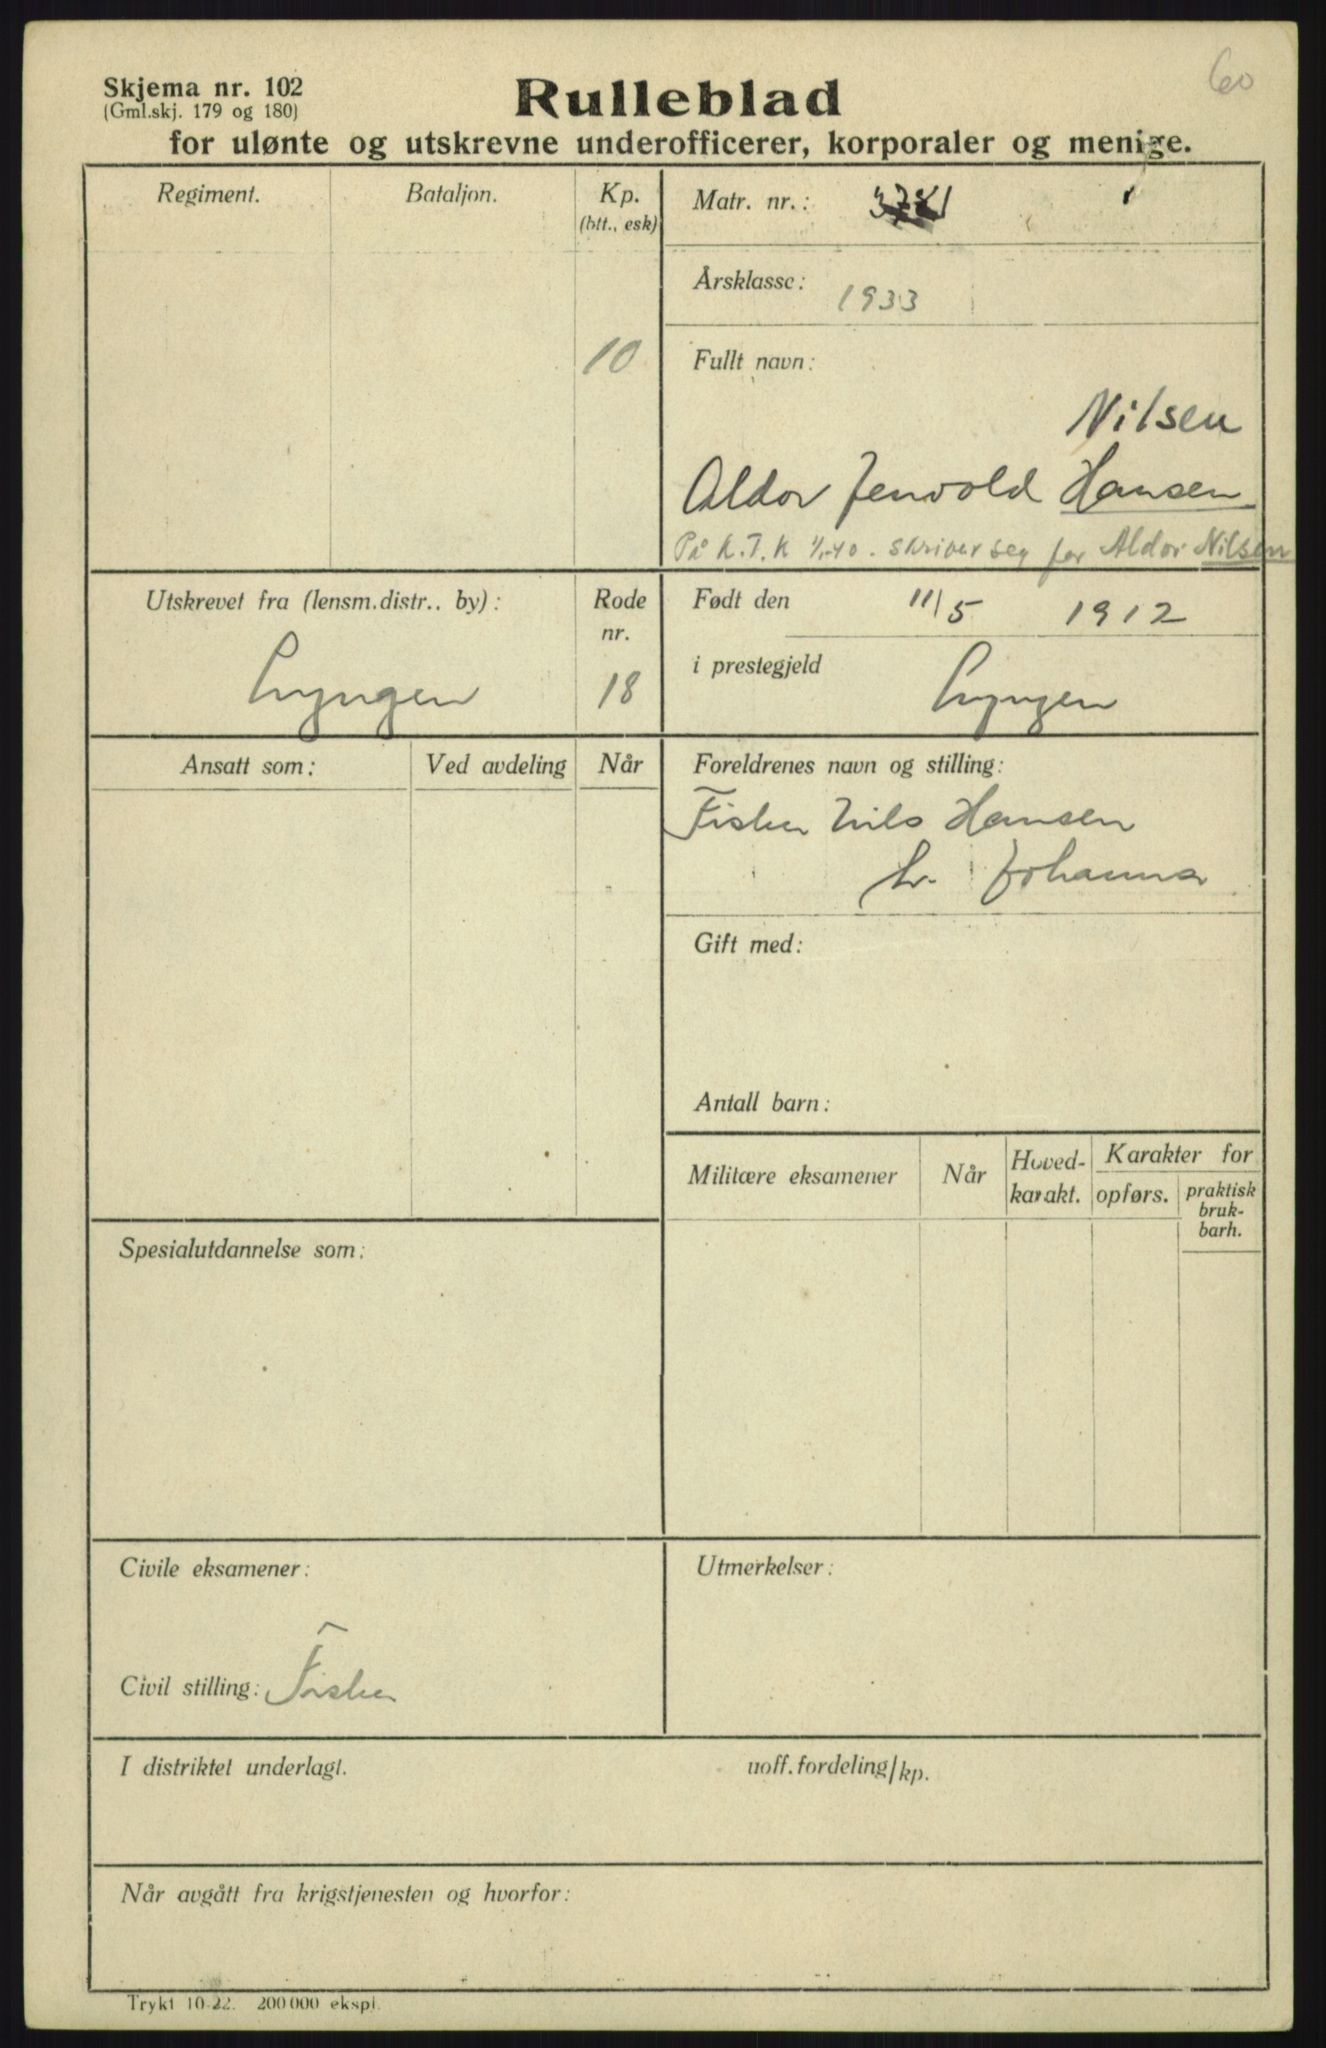 60
Skjema nr. 102
(Gml.skj. 179 og 180)
Rulleblad
for ulønte og utskrevne underofficerer, korporaler og menige.
Regiment.
Bataljon.
Kp.
(btt., esk)
10
Matr. nr.:
Årsklasse: 1933
Fullt navn:
Nilsen
Aldor Jenvold Hansen
På K.T.K 1/1-40. skriver seg for Aldor Nilsen
Utskrevet fra (lensm.distr.. by):
Lyngen
Rode
nr.
18
Født den 11/5 1912
i prestegjeld Lyngen
Ansatt som:
Ved avdeling
Når
Foreldrenes navn og stilling:
Fisker Nils Hansen
Johanna
Gift med:
Antall barn:
Militære eksamener
Når
Hoved-
karakt.
Karakter for
opførs.
praktisk
bruk-
barh.
Spesialutdannelse som:
Civile eksamener:
Civil stilling: Fisker
Utmerkelser:
I distriktet underlagt.
uoff. fordeling/kp.
Når avgått fra krigstjenesten og hvorfor:
Trykt 10-22. 200 000 ekspl.